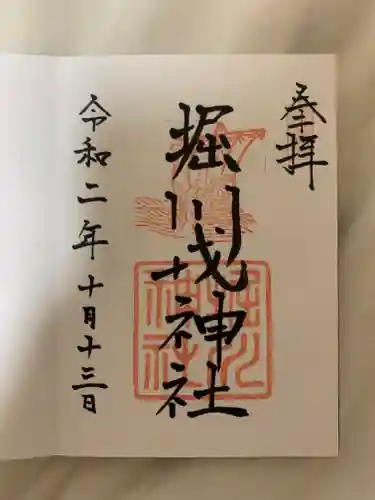 奉拝
堀川戎神社
令和二年十月十三日
堀川
神社